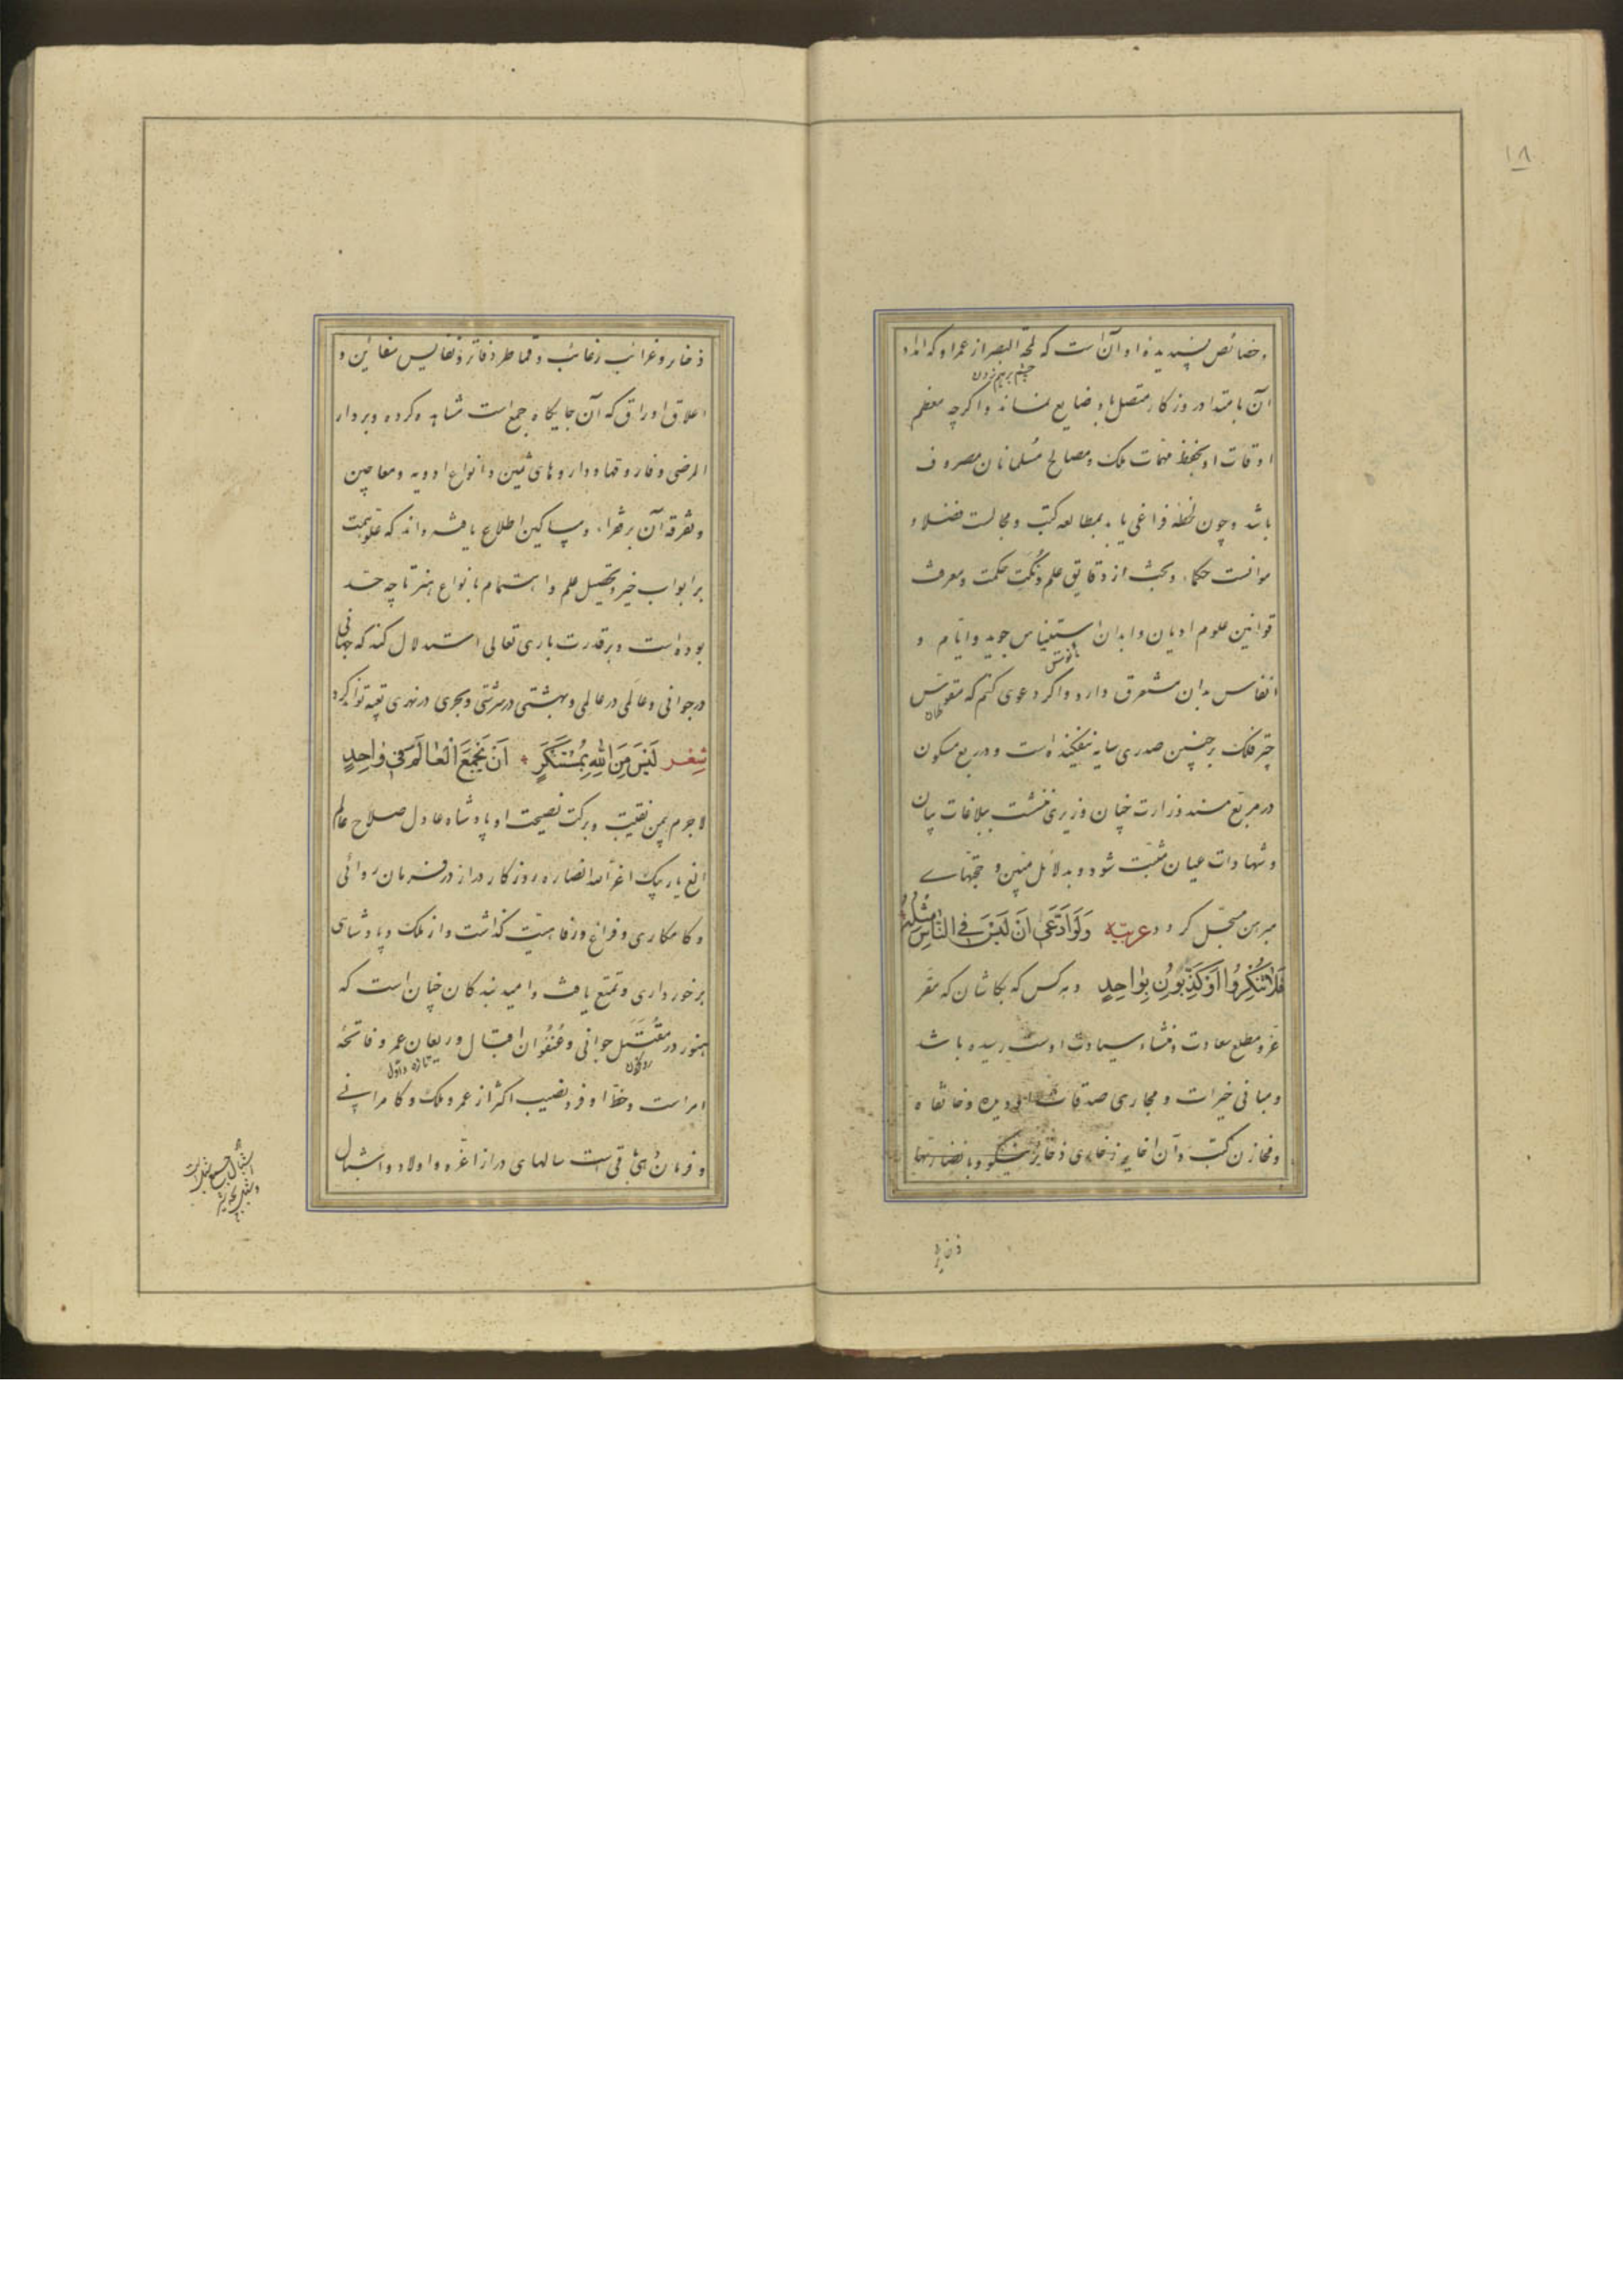 ۱۸
و خصائص پسندیده او آن است که لمحة البصر از عمر او که
چشم برهم زدن
آن بامتداد روزگار متصل باد ضایع نماند و اگرچه معظم
اوقات او بحفظ مهمات ملک و مصالح مسلمانان مصروف
باشد و چون لحظهٔ فراغی یابد بمطالعه کتب و مجالست فضلا و
موانست حکماء و بحث از دقایق علم و نُکَتِ حکمت و معرفت
قوانین علوم ادیان و ابدان استیناس جوید و ایام و
انفاس بدان مستغرق دارد و اگر دعوی کنم که مقوّس
طاق
چتر فلک بر چنین صدری سایه نیفکنده است و در ربع مسکون
در مربع مسند وزارت چنان وزیری ننشست ببلاغات بیان
و شهادات عیان مثبت شود و بدلائل متین و حجتهاے
مبرهن مسجّل گردد عربیّه وَلَوِ ادَّعَی اَنْ لَیْسَ فِی النّاسِ مِثْلُهُ
فَلا تُنْکِرُوا اَوْ کَذِّبُونِ بِواحِدٍ و هر کس که بکاشان که مقر
عز و مطلع سعادت و منشاء سیادت اوست رسیده باشد
و مبانی خیرات و مجاری صدقات او دیده و خانقاه
و مخازن کتب و آن
ذخایر
ذخایر و غرائب رغائب و قماطر دفاتر و نفایس سفائن و
اعلاق اوراق که آن جایگاه جمع است مشاهده کرده و بر دار
المرضی و فاروقها و داروهای ثمین و انواع ادویه و معاجین
و تفرقه آن بر فقراء و مساکین اطلاع یافته داند که علوّ همت
بر ابواب خیر و تحصیل علم و اهتمام بانواع هنر تا چه حد
بوده است و بر قدرت باری تعالی استدلال کند که جهانی
در جوانی و عالمی در عالمی و بهشتی در سرشتی و بحری در نهری تعبیه تواند کرد
شعر لَیْسَ مِنَ اللهِ بِمُسْتَنْکَرٍ * اَنْ یَجْمَعَ الْعالَمَ فی واحِدٍ
لاجرم بیمن نقیبت و برکت نصیحت او پادشاه عادل صلاح عالم
الغ باربک اعز الله انصاره روزگار دراز در فرمان روائی
و کامکاری و فراغ و رفاهیت گذاشت و از ملک و پادشاهی
برخورداری و تمتع یافت و امید بندگان چنان است که
هنوز در مُقْتَبَل جوانی و عُنْفُوان اقبال و ریعان عمر و فاتحهٔ
تازه و اوّل
امر است و حظّ اوفر و نصیب اکثر از عمر و ملک و کامرانے
و فرمان دهی باقی است سالهای دراز اعزه و اولاد و اشبال
اشبال جمع شبل است
و شبل بچه شیر